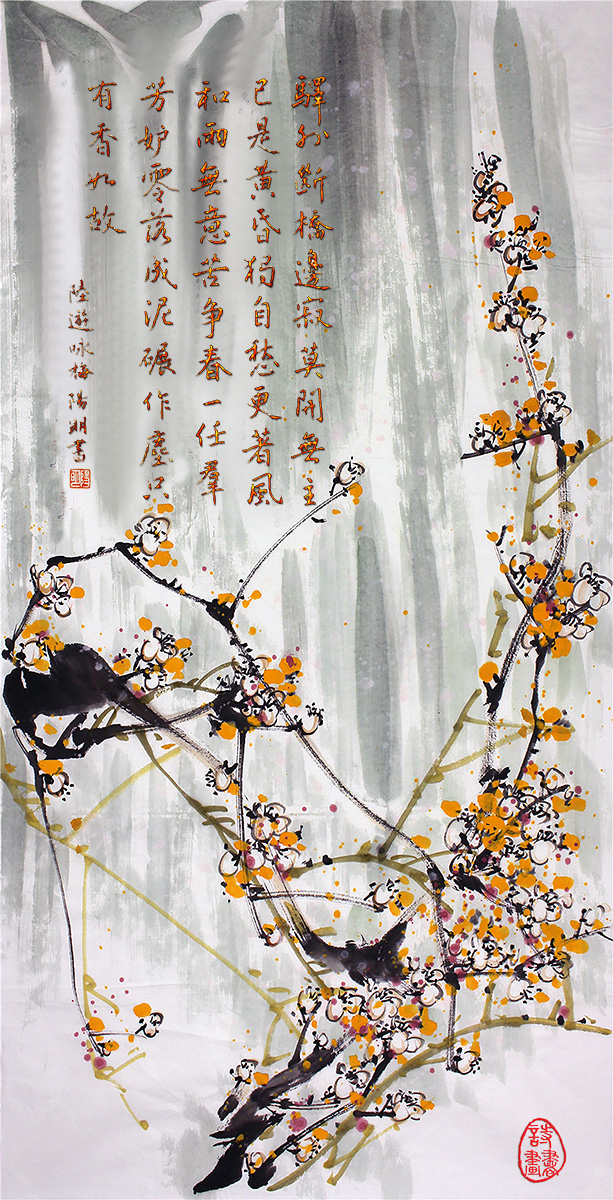 驛外斷橋邊寂莫開無主
已是黃昏獨自愁更著風
和雨無意苦爭春一任羣
芳妒零落成泥碾作塵只
有香如故
陸遊咏梅陽明書
詩書畫